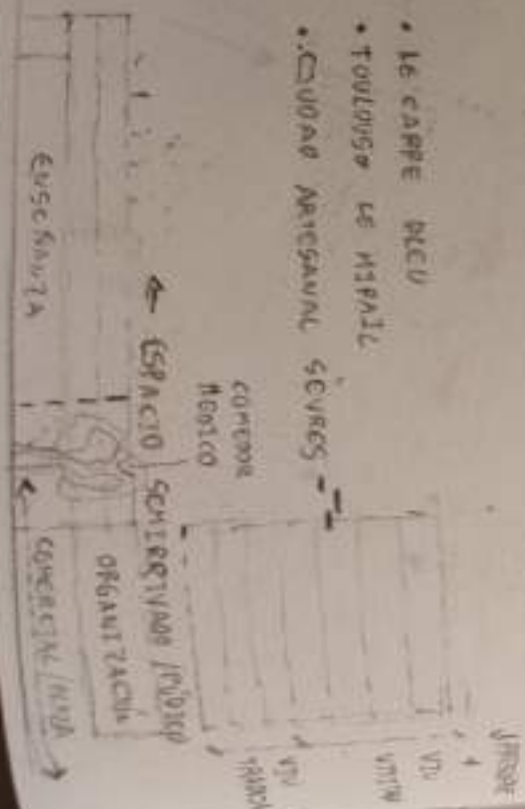 • LE CARRE BLEU
• TOULOUSE LE MIRAIL
• CIUDAD ARTESANAL SÈVRES
COMEDOR
MEDICO
← ESPACIO SEMIPRIVADO / PÚBLICO
ORGANIZACIÓN
ENSEÑANZA
COMERCIAL /
VIV
VIV